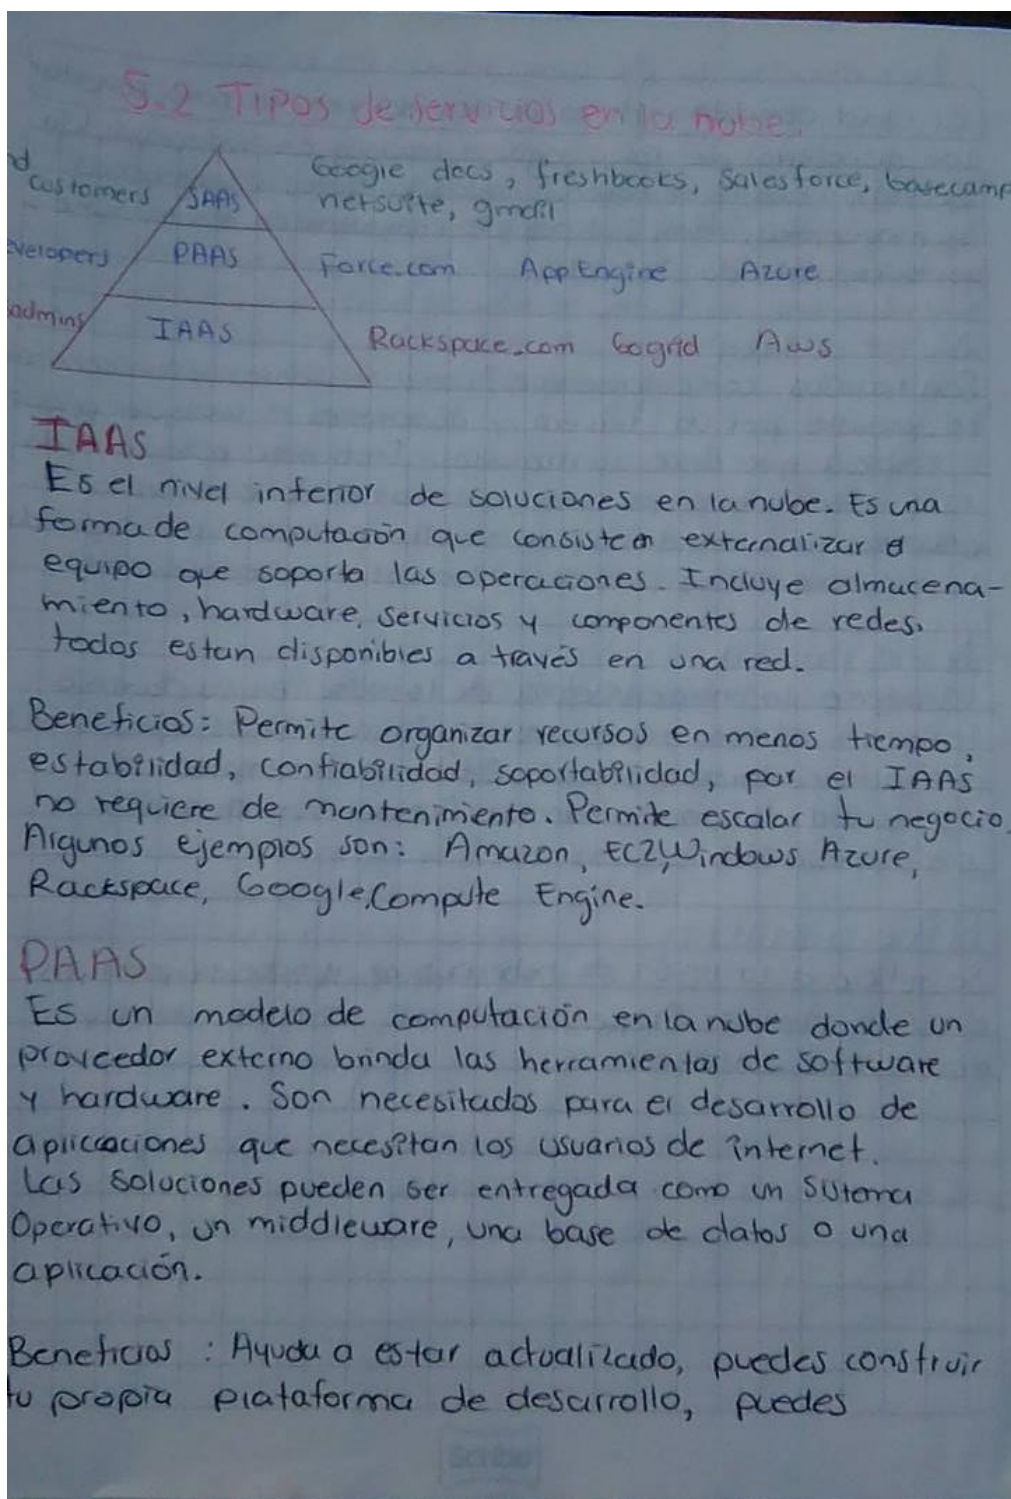 5.2 Tipos de servicios en la nube.
d customers SAAS Google docs, freshbooks, Salesforce, basecamp
netsuite, gmail
velopers PAAS Force.com App Engine Azure
admins IAAS Rackspace.com Gogrid Aws
IAAS
Es el nivel inferior de soluciones en la nube. Es una
forma de computación que consiste en externalizar el
equipo que soporta las operaciones. Incluye almacena-
miento, hardware, servicios y componentes de redes,
todos estan disponibles a través en una red.
Beneficios: Permite organizar recursos en menos tiempo,
estabilidad, confiabilidad, soportabilidad, por el IAAS
no requiere de mantenimiento. Permite escalar tu negocio.
Algunos ejemplos son: Amazon, EC2, Windows Azure,
Rackspace, Google, Compute Engine.
PAAS
Es un modelo de computación en la nube donde un
proveedor externo brinda las herramientas de software
y hardware. Son necesitados para el desarrollo de
aplicaciones que necesitan los usuarios de internet.
Las soluciones pueden ser entregada como un Sistema
Operativo, un middleware, una base de datos o una
aplicación.
Beneficios: Ayuda a estar actualizado, puedes construir
tu propia plataforma de desarrollo, puedes
Scribe